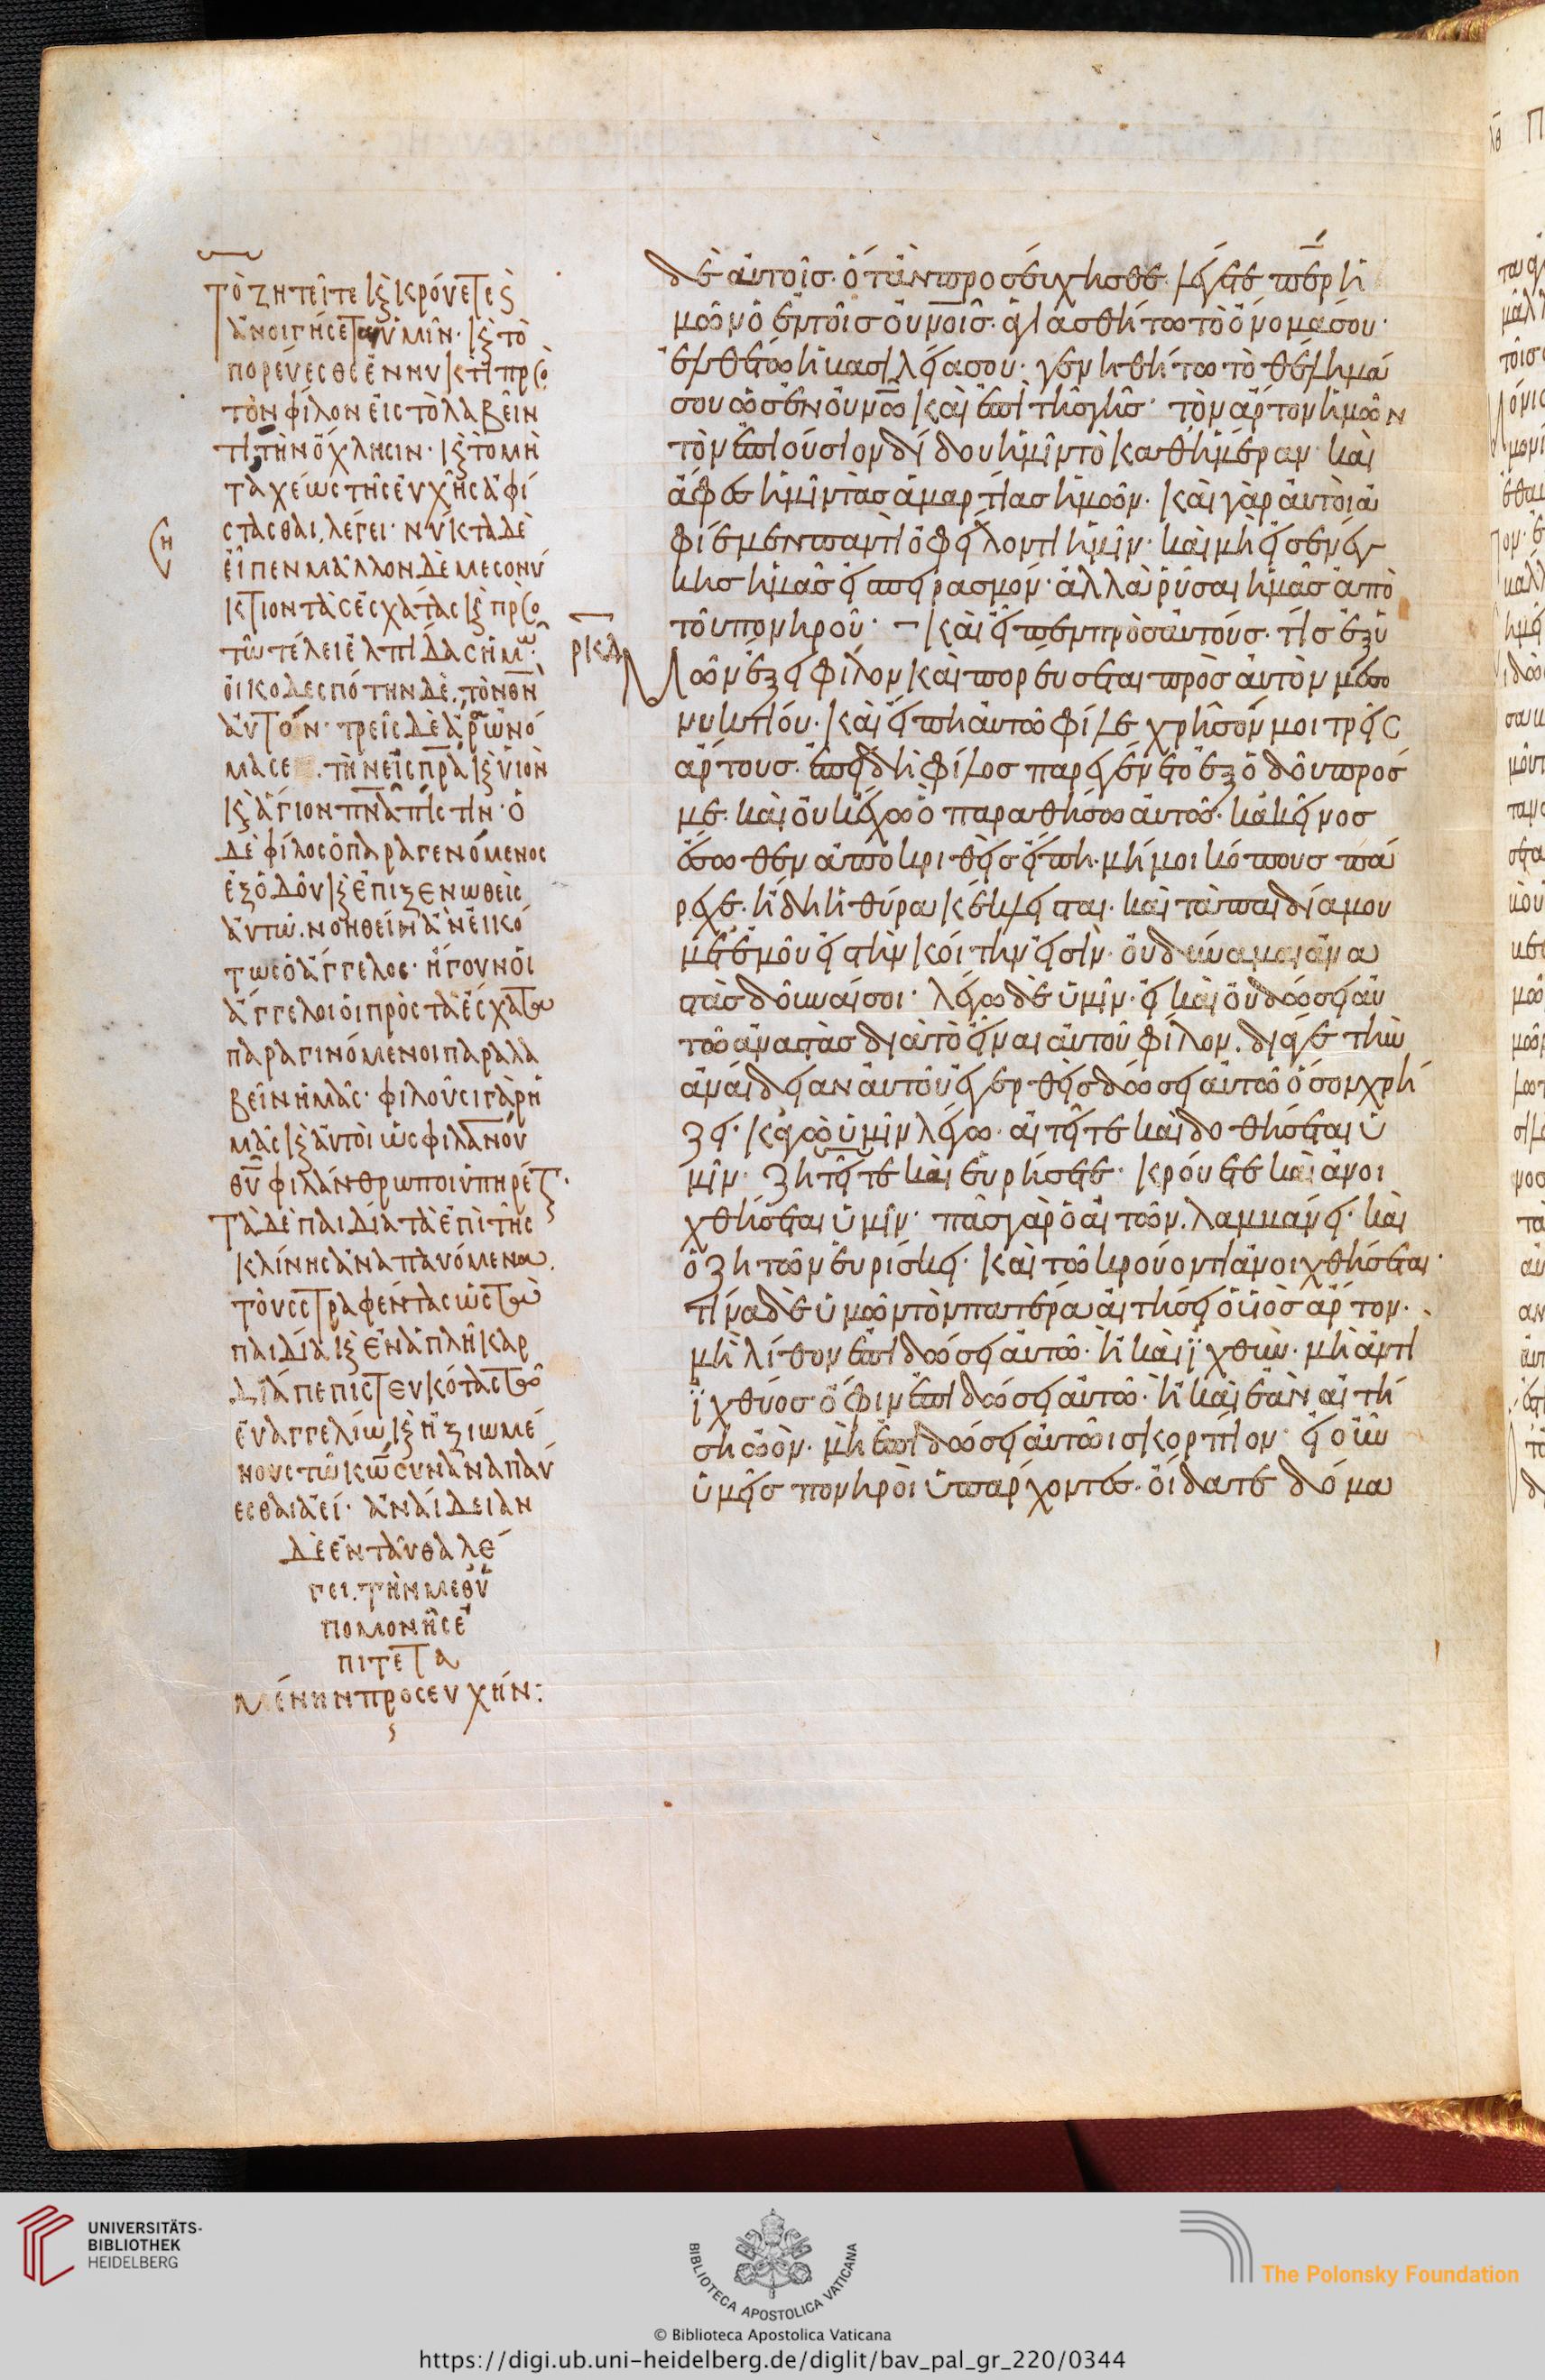 Τὸ ζητεῖτε κὶ κρούετε κὶ
ἀνοιγήσεται ὑμῖν· κὶ τὸ
πορεύεσθε ἐν νυκτὶ πρὸ(ς)
τὸν φίλον εἰς τὸ λαβεῖν
τι τὴν ὄχλησιν· κὶ τὸ μὴ
ταχέως τῆς εὐχῆς ἀφί
στασθαι, λέγει· νύκτα δὲ
εἶπεν μᾶλλον δὲ μεσονύ
κτιον τὰς ἐσχάτας κὶ πρὸ(ς)
τῶ τέλει ἐλπίδας ἡμῶν·
οἰκοδεσπότην δὲ, τὸν θν
αὐτόν· τρεῖς δὲ ἄρτων ὀνό
μασε. τὴν εἰς πρα κὶ υἱὸν
κὶ ἅγιον πνα πίστιν· ὁ
δὲ φίλος ὁ παραγενόμενος
ἐξ ὁδοῦ κὶ ἐπιξενωθεὶς
αὐτῶ. νοηθείη ἂν εἰκό
τως ὁ ἄγγελος· ἤγουν οἱ
ἄγγελοι οἱ πρὸς τὰ ἔσχατα
παραγινόμενοι παραλα
βεῖν ἡμᾶς· φιλοῦσι γὰρ ἡ
μᾶς κὶ αὐτοὶ ὡς φιλανου
θυ φιλάνθρωποι ὑπηρέται·
Τὰ δὲ παιδία τὰ ἐπὶ τῆς
κλίνης ἀναπαυόμενα.
τοὺς στραφέντας ὡς τὰ
παιδία κὶ ἐν ἁπλῆ καρ
δία πεπιστευκότας τῶ
εὐαγγελίω κὶ ἠξιωμέ
νους τῶ κω συναναπαύ
εσθαι ἀεί· ἀναίδειαν
δὲ ἐνταῦθα λέ
γει. τὴν μεθ' ὑ
πομονῆς ἐ
πιτετα
μένην προσευχήν:
δὲ αὐτοῖς. ὅταν προσεύχησθε λέγετε περ ἡ
μῶν ὁ ἐν τοῖς οὐνοῖς. ἁγιασθήτω τὸ ὄνομά σου·
ἐλθέτω ἡ βασιλεία σου· γενηθήτω τὸ θέλημά
σου ὡς ἐν οὐνω καὶ ἐπὶ τῆς γῆς· τὸν ἄρτον ἡμῶν
τὸν ἐπιούσιον δίδου ἡμῖν τὸ καθ' ἡμέραν· καὶ
ἄφες ἡμῖν τὰς ἁμαρτίας ἡμῶν· καὶ γὰρ αὐτοὶ ἀ
φίεμεν παντὶ ὀφείλοντι ἡμῖν· καὶ μὴ εἰσενέγ
κης ἡμᾶς εἰς πειρασμόν· ἀλλὰ ῥῦσαι ἡμᾶς ἀπὸ
τοῦ πονηροῦ· ¬ καὶ εἶπεν πρὸς αὐτούς. τίς ἐξ ὑ
ρκδ μῶν ἕξει φίλον καὶ πορεύσεται πρὸς αὐτὸν μεσο
νυκτίου· καὶ εἴπη αὐτῶ φίλε χρῆσόν μοι τρεῖς
ἄρτους. ἐπειδὴ φίλος παρεγένετο ἐξ ὁδοῦ πρός
με. καὶ οὐκ ἔχω ὃ παραθήσω αὐτῶ. κἀκεῖνος
ἔσωθεν ἀποκριθεὶς εἴπη. μή μοι κόπους πά
ρεχε. ἤδη ἡ θύρα κέκλεισται. καὶ τὰ παιδία μου
μετ' ἐμοῦ εἰς τὴν κοίτην εἰσίν· οὐ δύναμαι ἀνα
στὰς δοῦναί σοι· λέγω δὲ ὑμῖν· εἰ καὶ οὐ δώσει αὐ
τῶ ἀναστὰς διὰ τὸ εἶναι αὐτοῦ φίλον. διά γε τὴν
ἀναίδειαν αὐτοῦ ἐγερθεὶς δώσει αὐτῶ ὅσον χρή
ζει· κἀγὼ ὑμῖν λέγω· αἰτεῖτε καὶ δοθήσεται ὑ
μῖν· ζητεῖτε καὶ εὑρήσετε· κρούετε καὶ ἀνοι
χθήσεται ὑμῖν· πᾶς γὰρ ὁ αἰτῶν. λαμβάνει· καὶ
ὁ ζητῶν εὑρίσκει· καὶ τῶ κρούοντι ἀνοιχθήσεται·
τίνα δὲ ὑμῶν τὸν πατέρα αἰτήσει ὁ υἱὸς ἄρτον·
μὴ λίθον ἐπιδώσει αὐτῶ· ἢ καὶ ἰχθὺν· μὴ ἀντὶ
ἰχθύος ὄφιν ἐπιδώσει αὐτῶ· ἢ καὶ ἐὰν αἰτή
ση ὠόν· μὴ ἐπιδώσει αὐτῶ σκορπίον· εἰ οὖν
ὑμεῖς πονηροὶ ὑπάρχοντες· οἴδατε δόμα
UNIVERSITÄTS-
BIBLIOTHEK
HEIDELBERG
BIBLIOTECA APOSTOLICA VATICANA
The Polonsky Foundation
© Biblioteca Apostolica Vaticana
https://digi.ub.uni-heidelberg.de/diglit/bav_pal_gr_220/0344